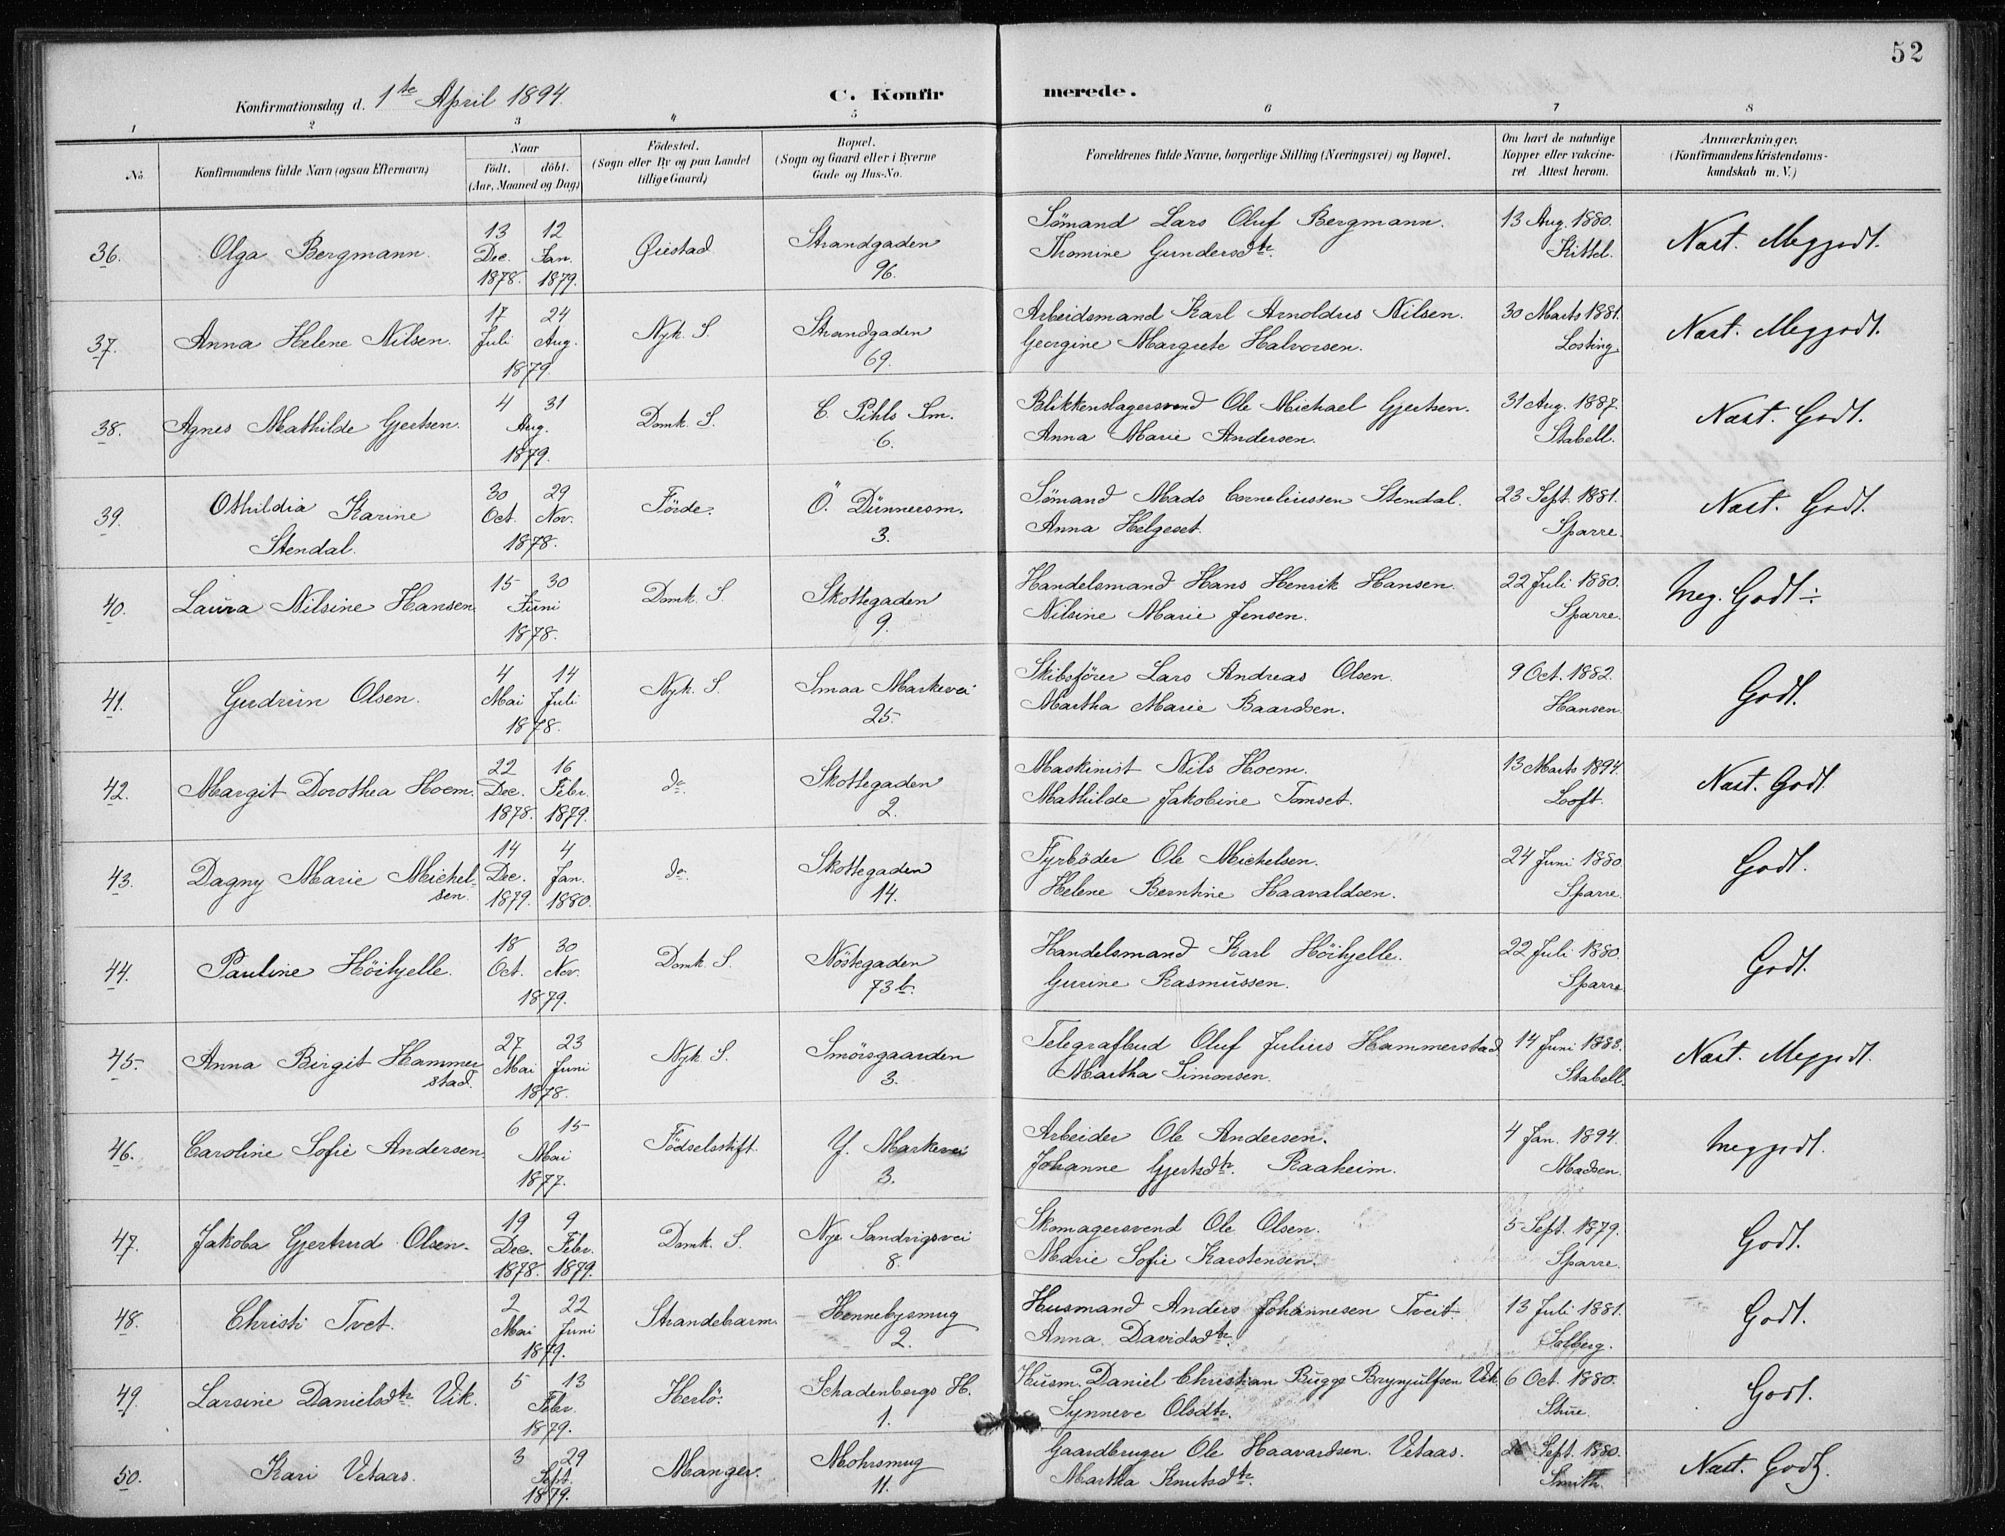 52
Konfirmationsdag d. 1ste April 1894.
C. Konfirmerede.
1 2 3 4 5 6 7 8
No
Konfirmandens fulde Navn (ogsaa Efternavn)
Naar
født. döbt.
(Aar, Maaned og Dag)
Födested.
(Sogn eller By og paa Landet
tillige Gaard)
Bopæl.
(Sogn og Gaard eller i Byerne
Gade og Hus-No.
Forældrenes fulde Navne, borgerlige Stilling (Næringsvei) og Bopæl.
Om havt de naturlige
Kopper eller vakcine-
ret Attest herom.
Anmærkninger.
(Konfirmandens Kristendoms-
kundskab m. V.)
36. Olga Bergmann. 13 Dec. 1878. 12 Jan. 1879. Øiestad Strandgaden 96. Sömand Lars Oluf Bergmann. 13 Aug. 1880.
Thomine Gundersdtr. Kittel. Næst. Meggodt.
37. Anna Helene Nilsen. 17 Juli 24 Aug. 1879. Nyk. S. Strandgaden 69. Arbeidsmand Karl Arnoldus Nilsen. 30 Marts 1881.
Georgine Margrete Halvorsen. Losting Næst. Meggodt.
38. Agnes Mathilde Gjertsen. 4 31 Aug. 1879. Domk. S. C. Pihls Sm. 6. Blikkenslagersvend Ole Michael Gjertsen. 31 Aug. 1887.
Anna Marie Andersen. Stabell. Næst. Godt.
39. Othildia Karine
Stendal. 30 Oct. 29 Nov. 1878. Förde. Ö. Dünnersm. 3. Sömand Mads Corneliussen Stendal. 23 Sept. 1881.
Anna Helgeset. Sparre. Næst. Godt.
40. Laura Nilsine Hansen. 15 30 Juni 1878. Domk. S. Skottegaden 9. Handelsmand Hans Henrik Hansen. 22 Juli 1880.
Nilsine Marie Jensen. Sparre. Meg. Godt ÷
41. Gudrun Olsen. 4 Mai 14 Juli 1878. Nyk. S. Smaa Markevei 25. Skibsförer Lars Andreas Olsen. 9 Oct. 1882.
Martha Marie Baardsen. Hansen. Godt.
42. Margit Dorothea Hoem. 22 Dec. 1878. 16 Febr. 1879. do. Skottegaden 2. Maskinist Nils Hoem. 13 Marts 1894.
Mathilde Jakobine Tomset. Looft. Næst. Godt.
43. Dagny Marie Michel-
sen. 14 Dec. 1879. 4 Jan. 1880. do. Skottegaden 14. Fyrböder Ole Michelsen. 24 Juni 1880.
Helene Berntine Haavaldsen. Sparre. Godt.
44. Pauline Höihjelle. 18 Oct. 30 Nov. 1879. Domk. S. Nöstegaden 73 b. Handelsmand Karl Höihjelle. 22 Juli 1880.
Gurine Rasmussen. Sparre Godt.
45. Anna Birgit Hammer
stad. 27 Mai 23 Juni 1878. Nyk. S. Smörsgaarden 3. Telegrafbud Oluf Julius Hammerstad 14 Juni 1883.
Martha Simonsen. Stabell. Næst. Meggodt.
46. Caroline Sofie Andersen. 6 15 Mai 1877. Födselsstift. Y. Markevei 3. Arbeider Ole Andersen. 4 Jan. 1894.
Johanne Gjertsdtr. Raaheim. Madsen. Meggodt.
47. Jakoba Gjertrud Olsen. 19 Dec. 1878. 9 Febr. 1879. Domk. S. Nye Sandvigsvei 8. Skomagersvend Ole Olsen. 5 Sept. 1879.
Marie Sofie Karstensen. Sparre. Godt.
48. Christi Tvet. 2 Mai 22 Juni 1879. Strandebarm. Hennebysmug 2. Husmand Anders Johannesen Tveit. 13 Juli 1881.
Anna Davidsdtr. Solberg. Godt.
49. Larsine Danielsdtr. Vik. 5 13 Febr. 1879. Herlö. Schadenbergs H. 1. Husm. Daniel Christian Bugge Brynjulfsen Vik. 6 Oct. 1880.
Synneve Olsdtr. Stüe. Godt.
50. Kari Vetaas. 3 29 Sept. 1879. Manger. Mohrsmug 11. Gaardbruger Ole Haavardsen Vetaas. Sept. 1880.
Martha Knutsdtr. Smith. Næst. Godt.